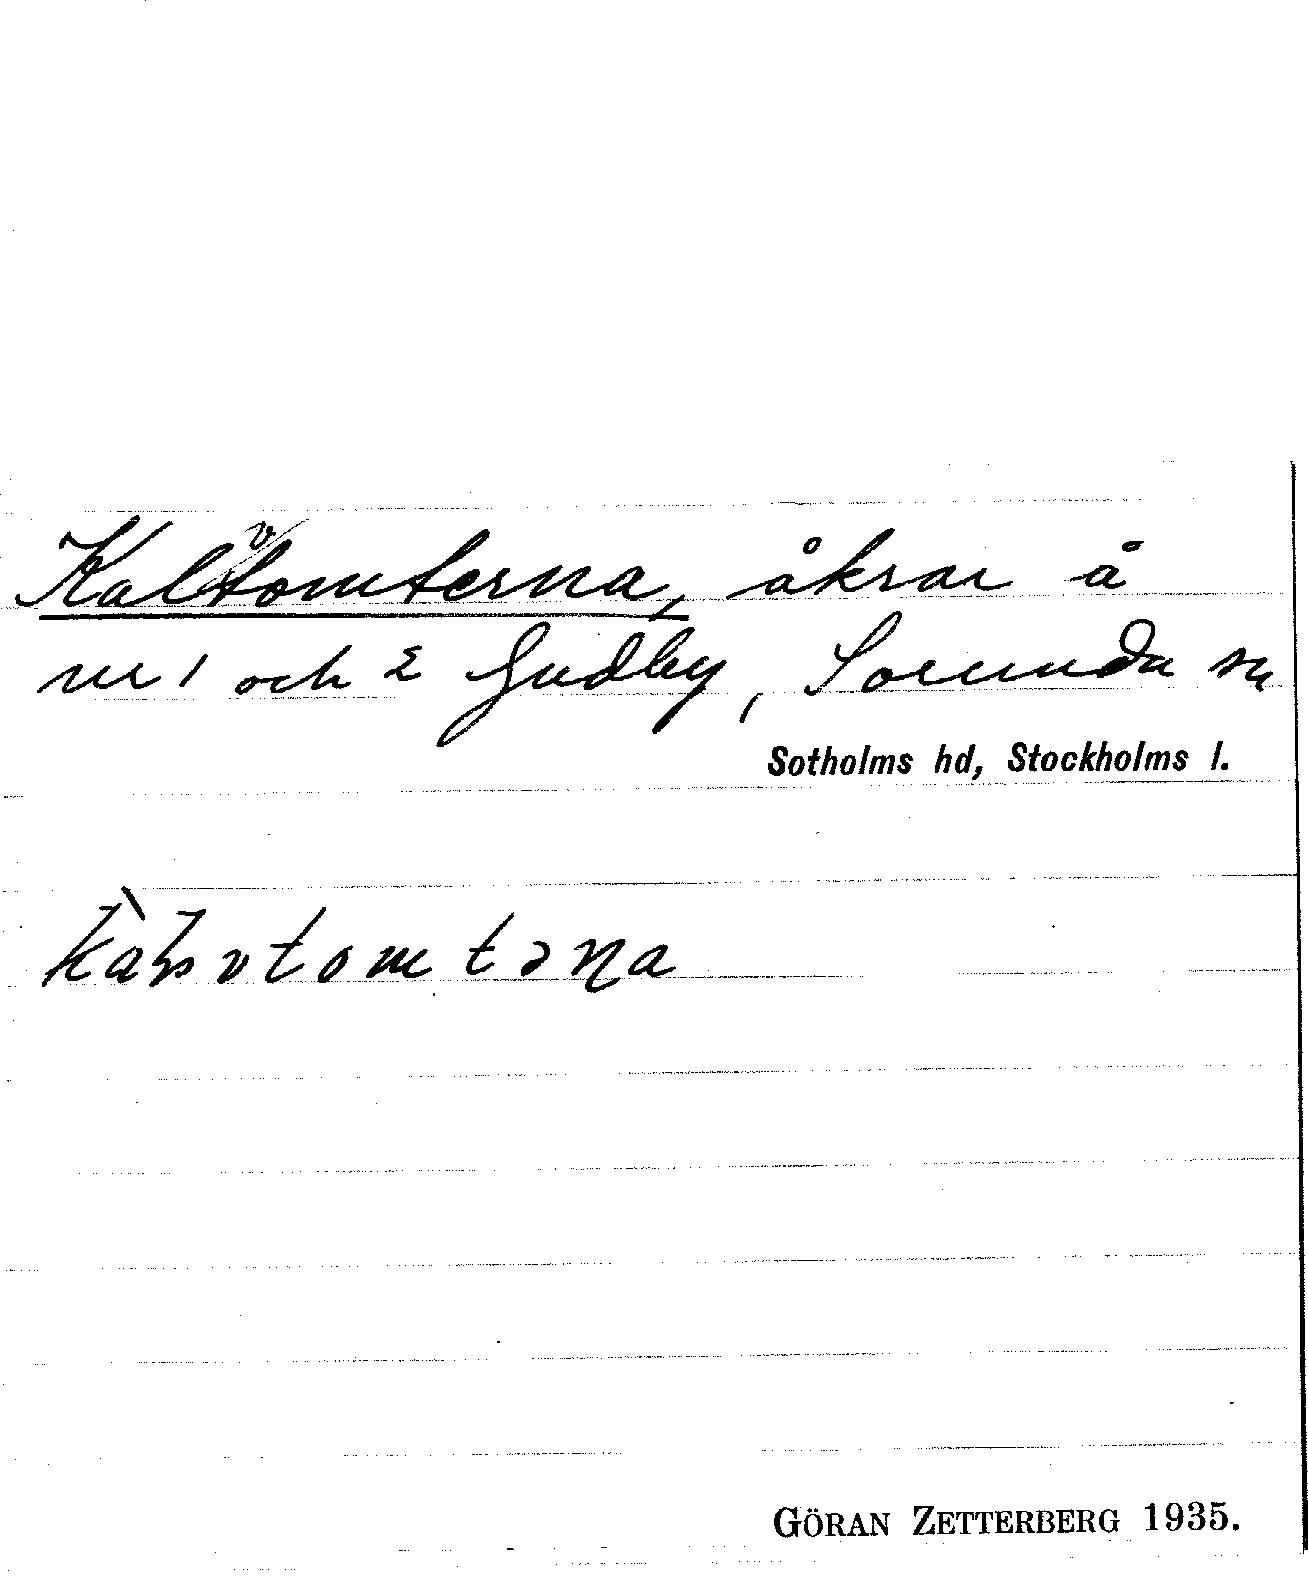 Kalvtomterna, åkrar å
nr 1 och 2 Gudby, Sorunda sn
Sotholms hd, Stockholms l.
kàɭvtomtəɳa
GÖRAN ZETTERBERG 1935.